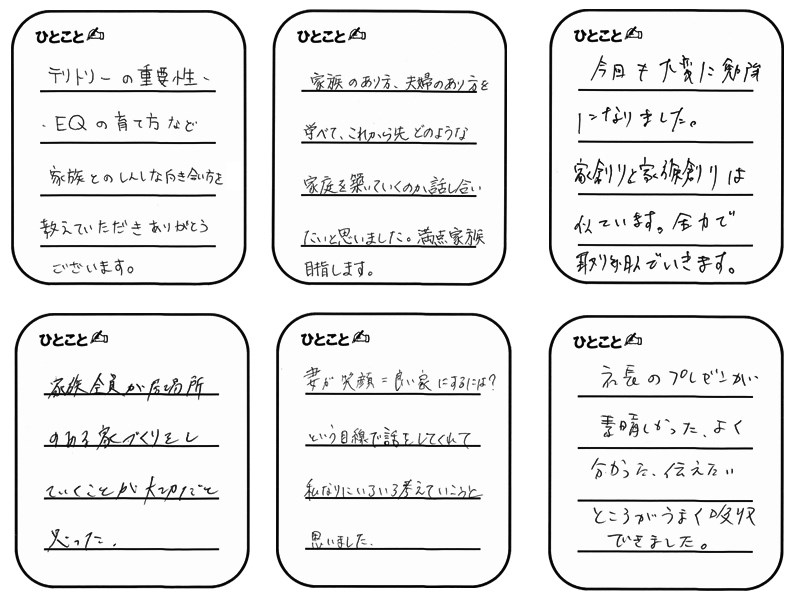 ひとこと
テリトリーの重要性、
、EQの育て方など
家族とのしんしな向き合い方を
教えていただきありがとう
ございます。
ひとこと
家族のあり方、夫婦のあり方を
学べて、これから先どのような
家庭を築いていくのか話し合い
たいと思いました。満点家族
目指します。
ひとこと
今回も大変に勉強
になりました。
家創りと家族創りは
似ています。全力で
取り組んでいきます。
ひとこと
家族全員が居場所
のある家づくりをし
ていくことが大切だと
思った。
ひとこと
妻が笑顔=良い家にするには?
という目線で話をしてくれて
私なりにいろいろ考えていこうと
思いました.
ひとこと
社長のプレゼンがい
素晴しかった、よく
分かった、伝えたい
ところがうまく吸収
できました。